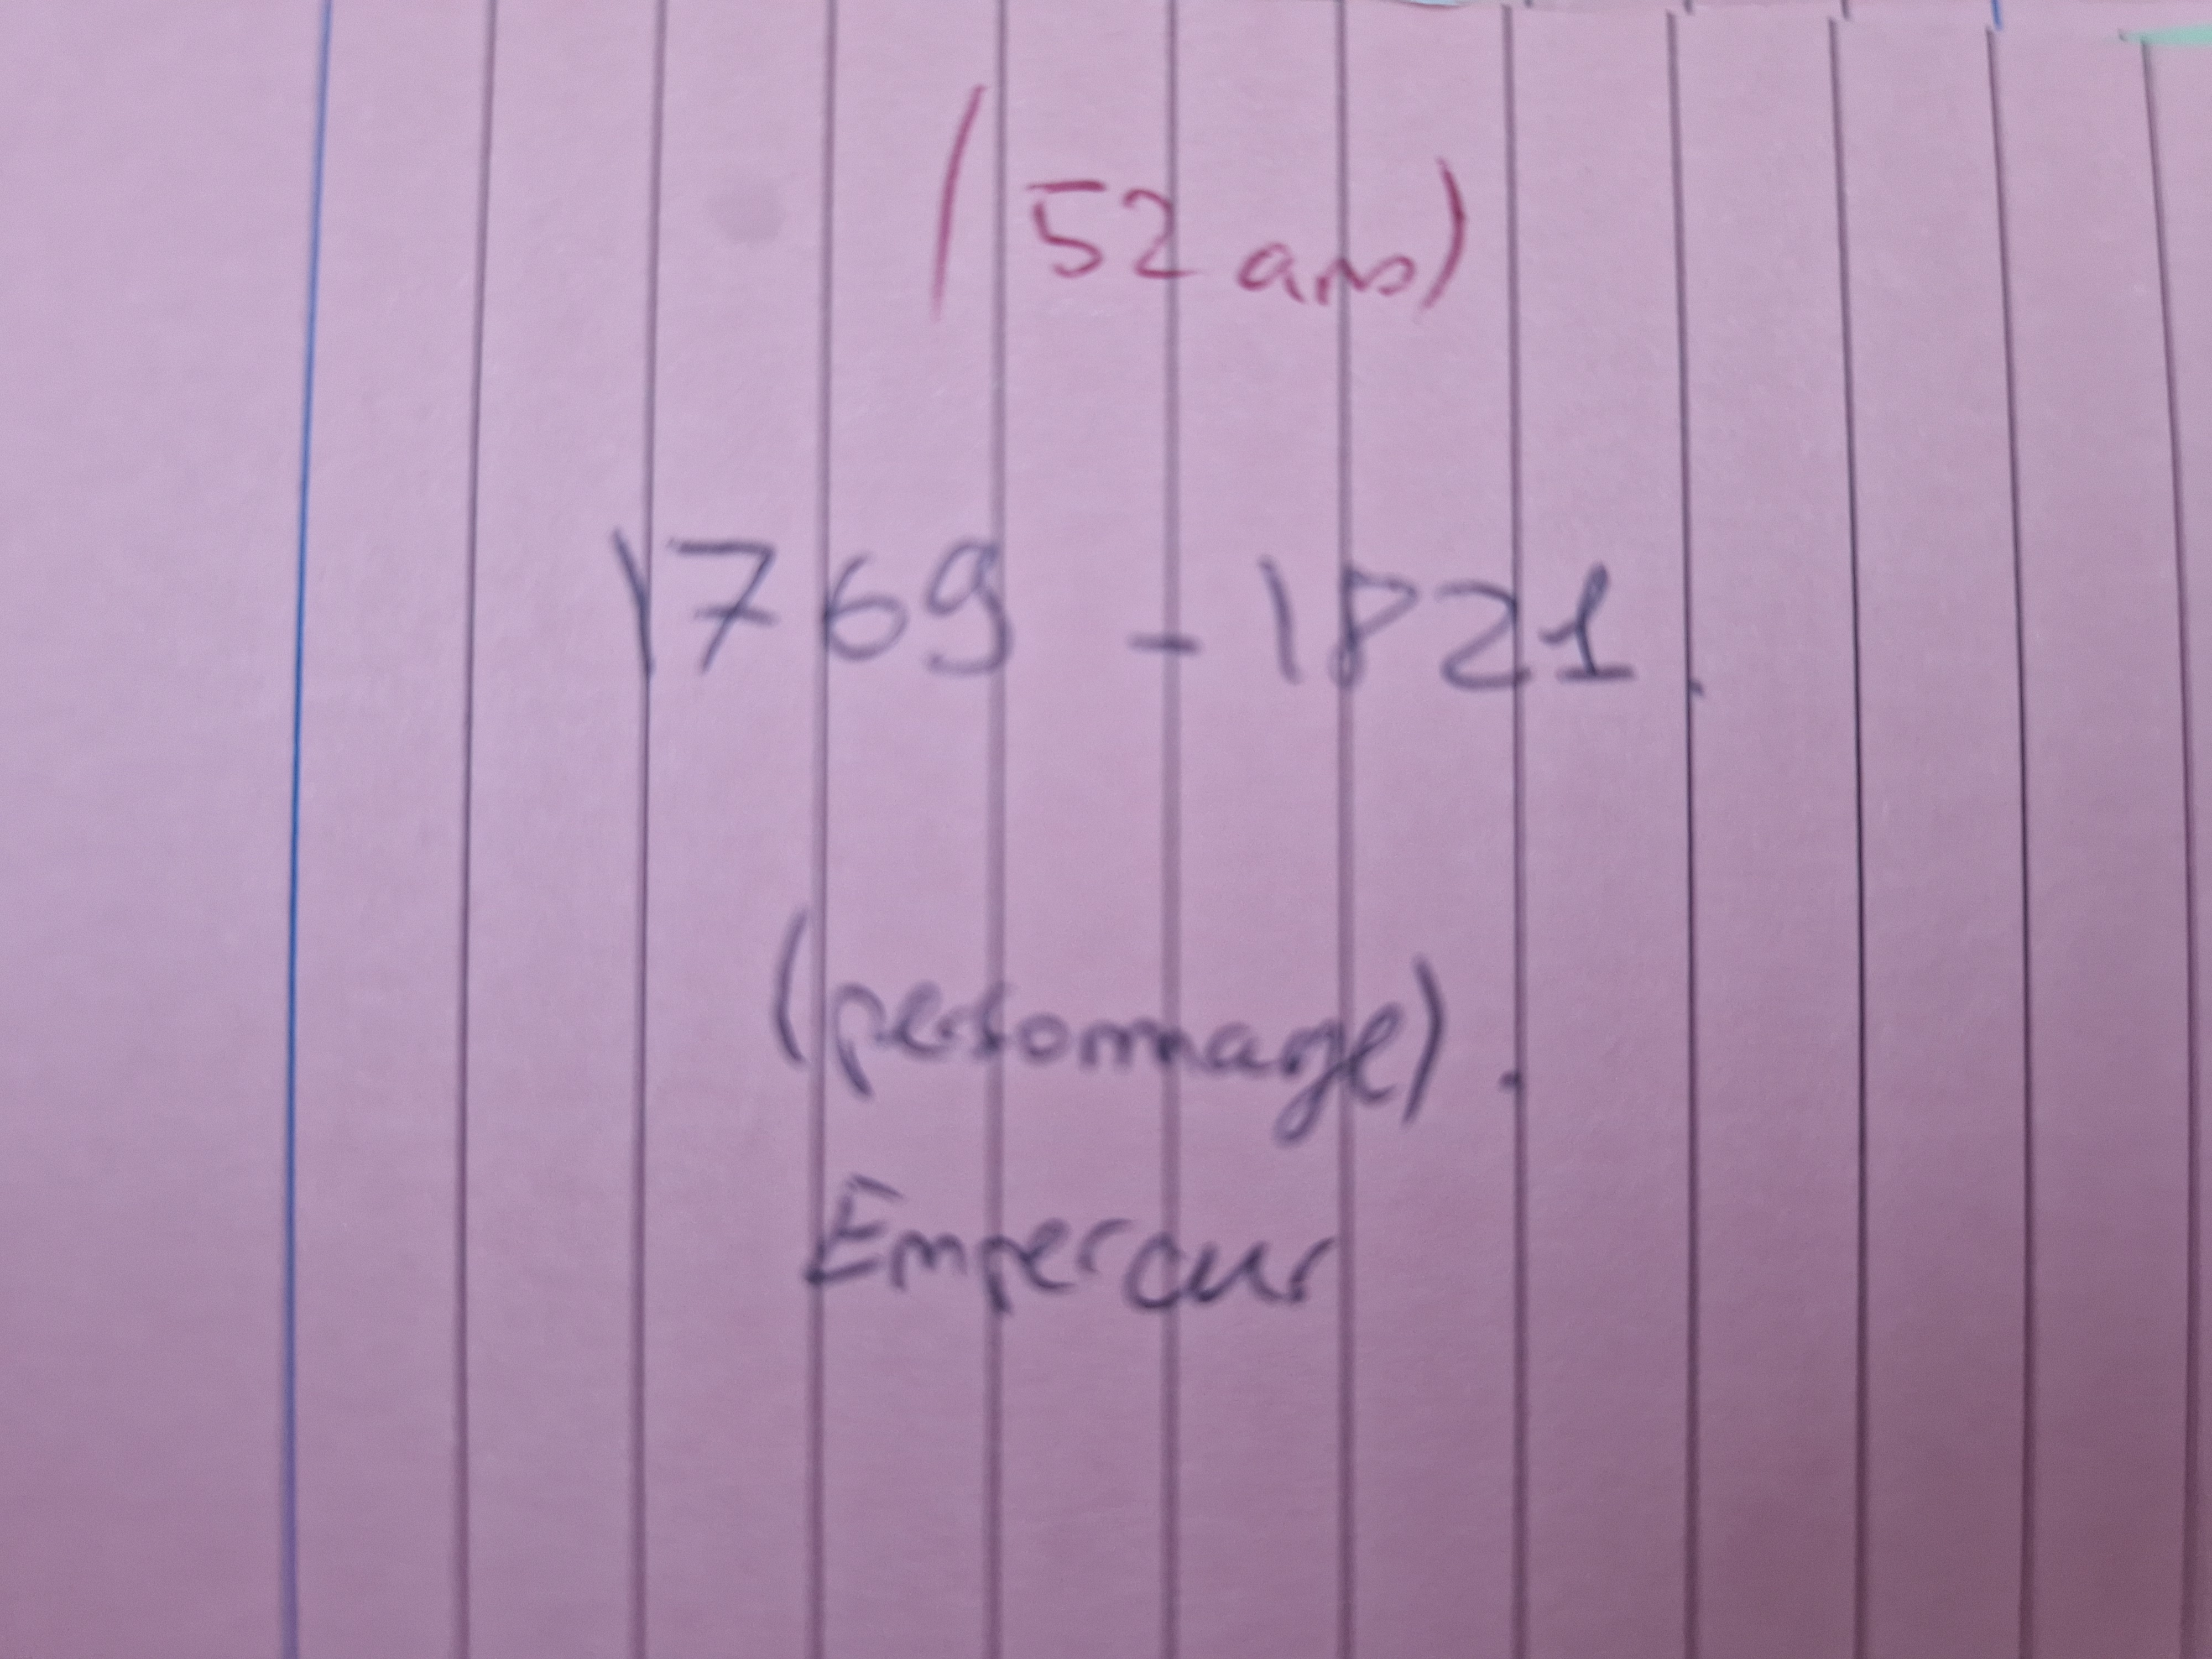 (52 ans)
1769 - 1821.
(personnage).
Empereur